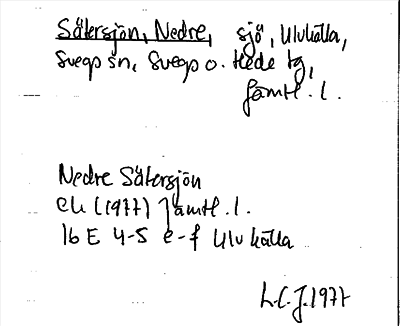 Sätersjön, Nedre, sjö, Ulvkälla,
Svegs sn, Svegs o. Hede tg,
Jämtl. l.
Nedre Sätersjön
ek (1977) Jämtl. l.
16 E 4-5 e-f Ulvkälla
L.C.J. 1977